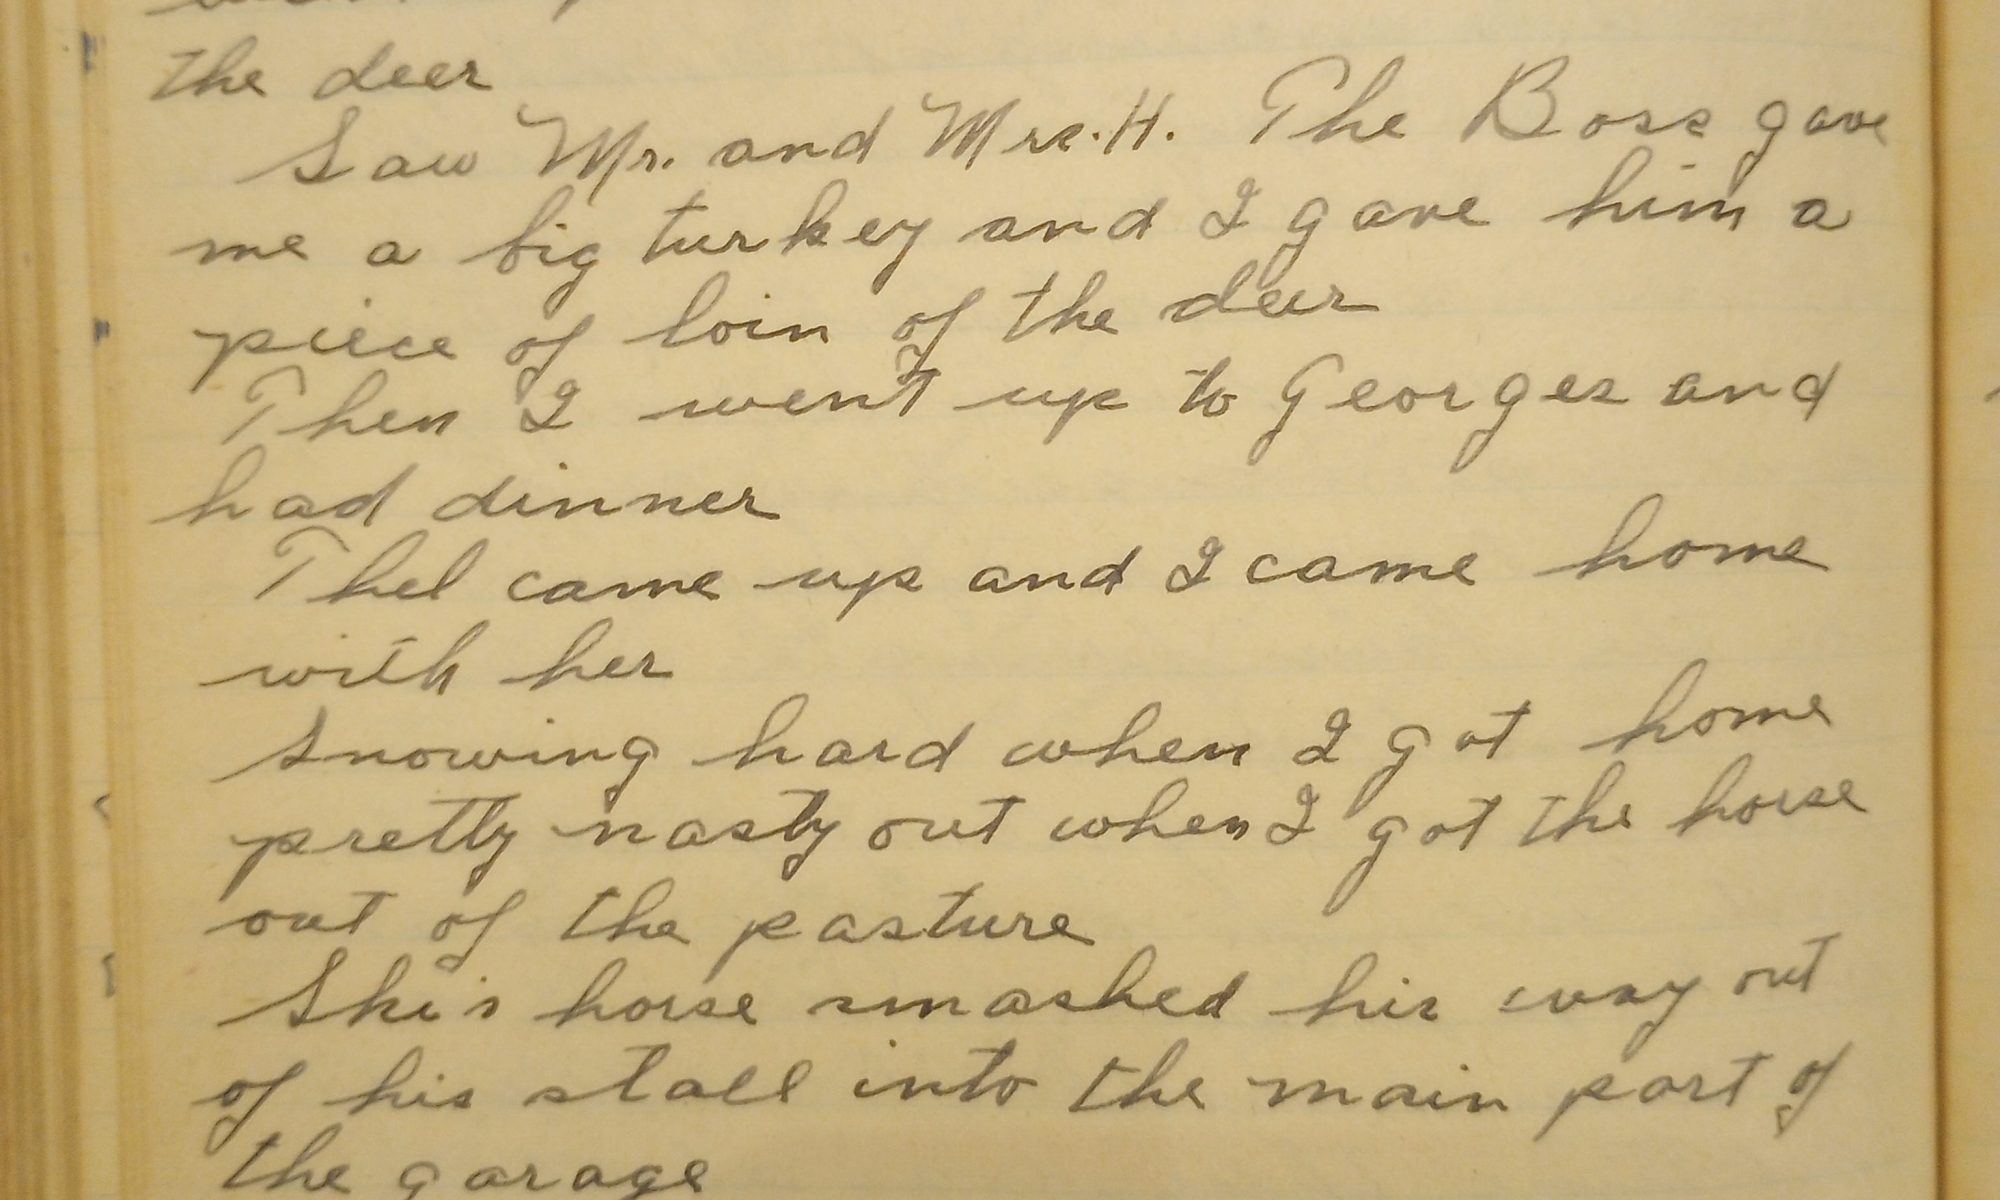 the deer
Saw Mr. and Mrs. H. The Boss gave
me a big turkey and I gave him a
piece of loin of the deer
Then I went up to Georges and
had dinner
Thel came up and I came home
with her
Snowing hard when I got home
pretty nasty out when I got the horse
out of the pasture
Ski's horse smashed his way out
of his stall into the main part of
the garage